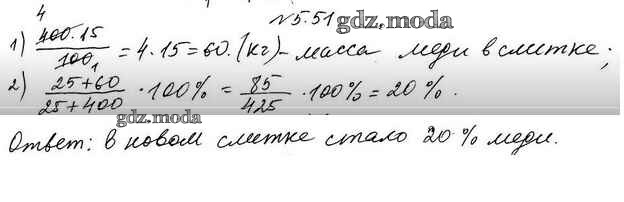 4 №5.51 gdz.moda
1) 400·15/100 1 = 4·15=60.(кг)- масса меди в слитке;
2) 25+60/25+400 ·100% = 85/425 ·100%=20%.
gdz.moda
Ответ: в новом слитке стало 20% меди.